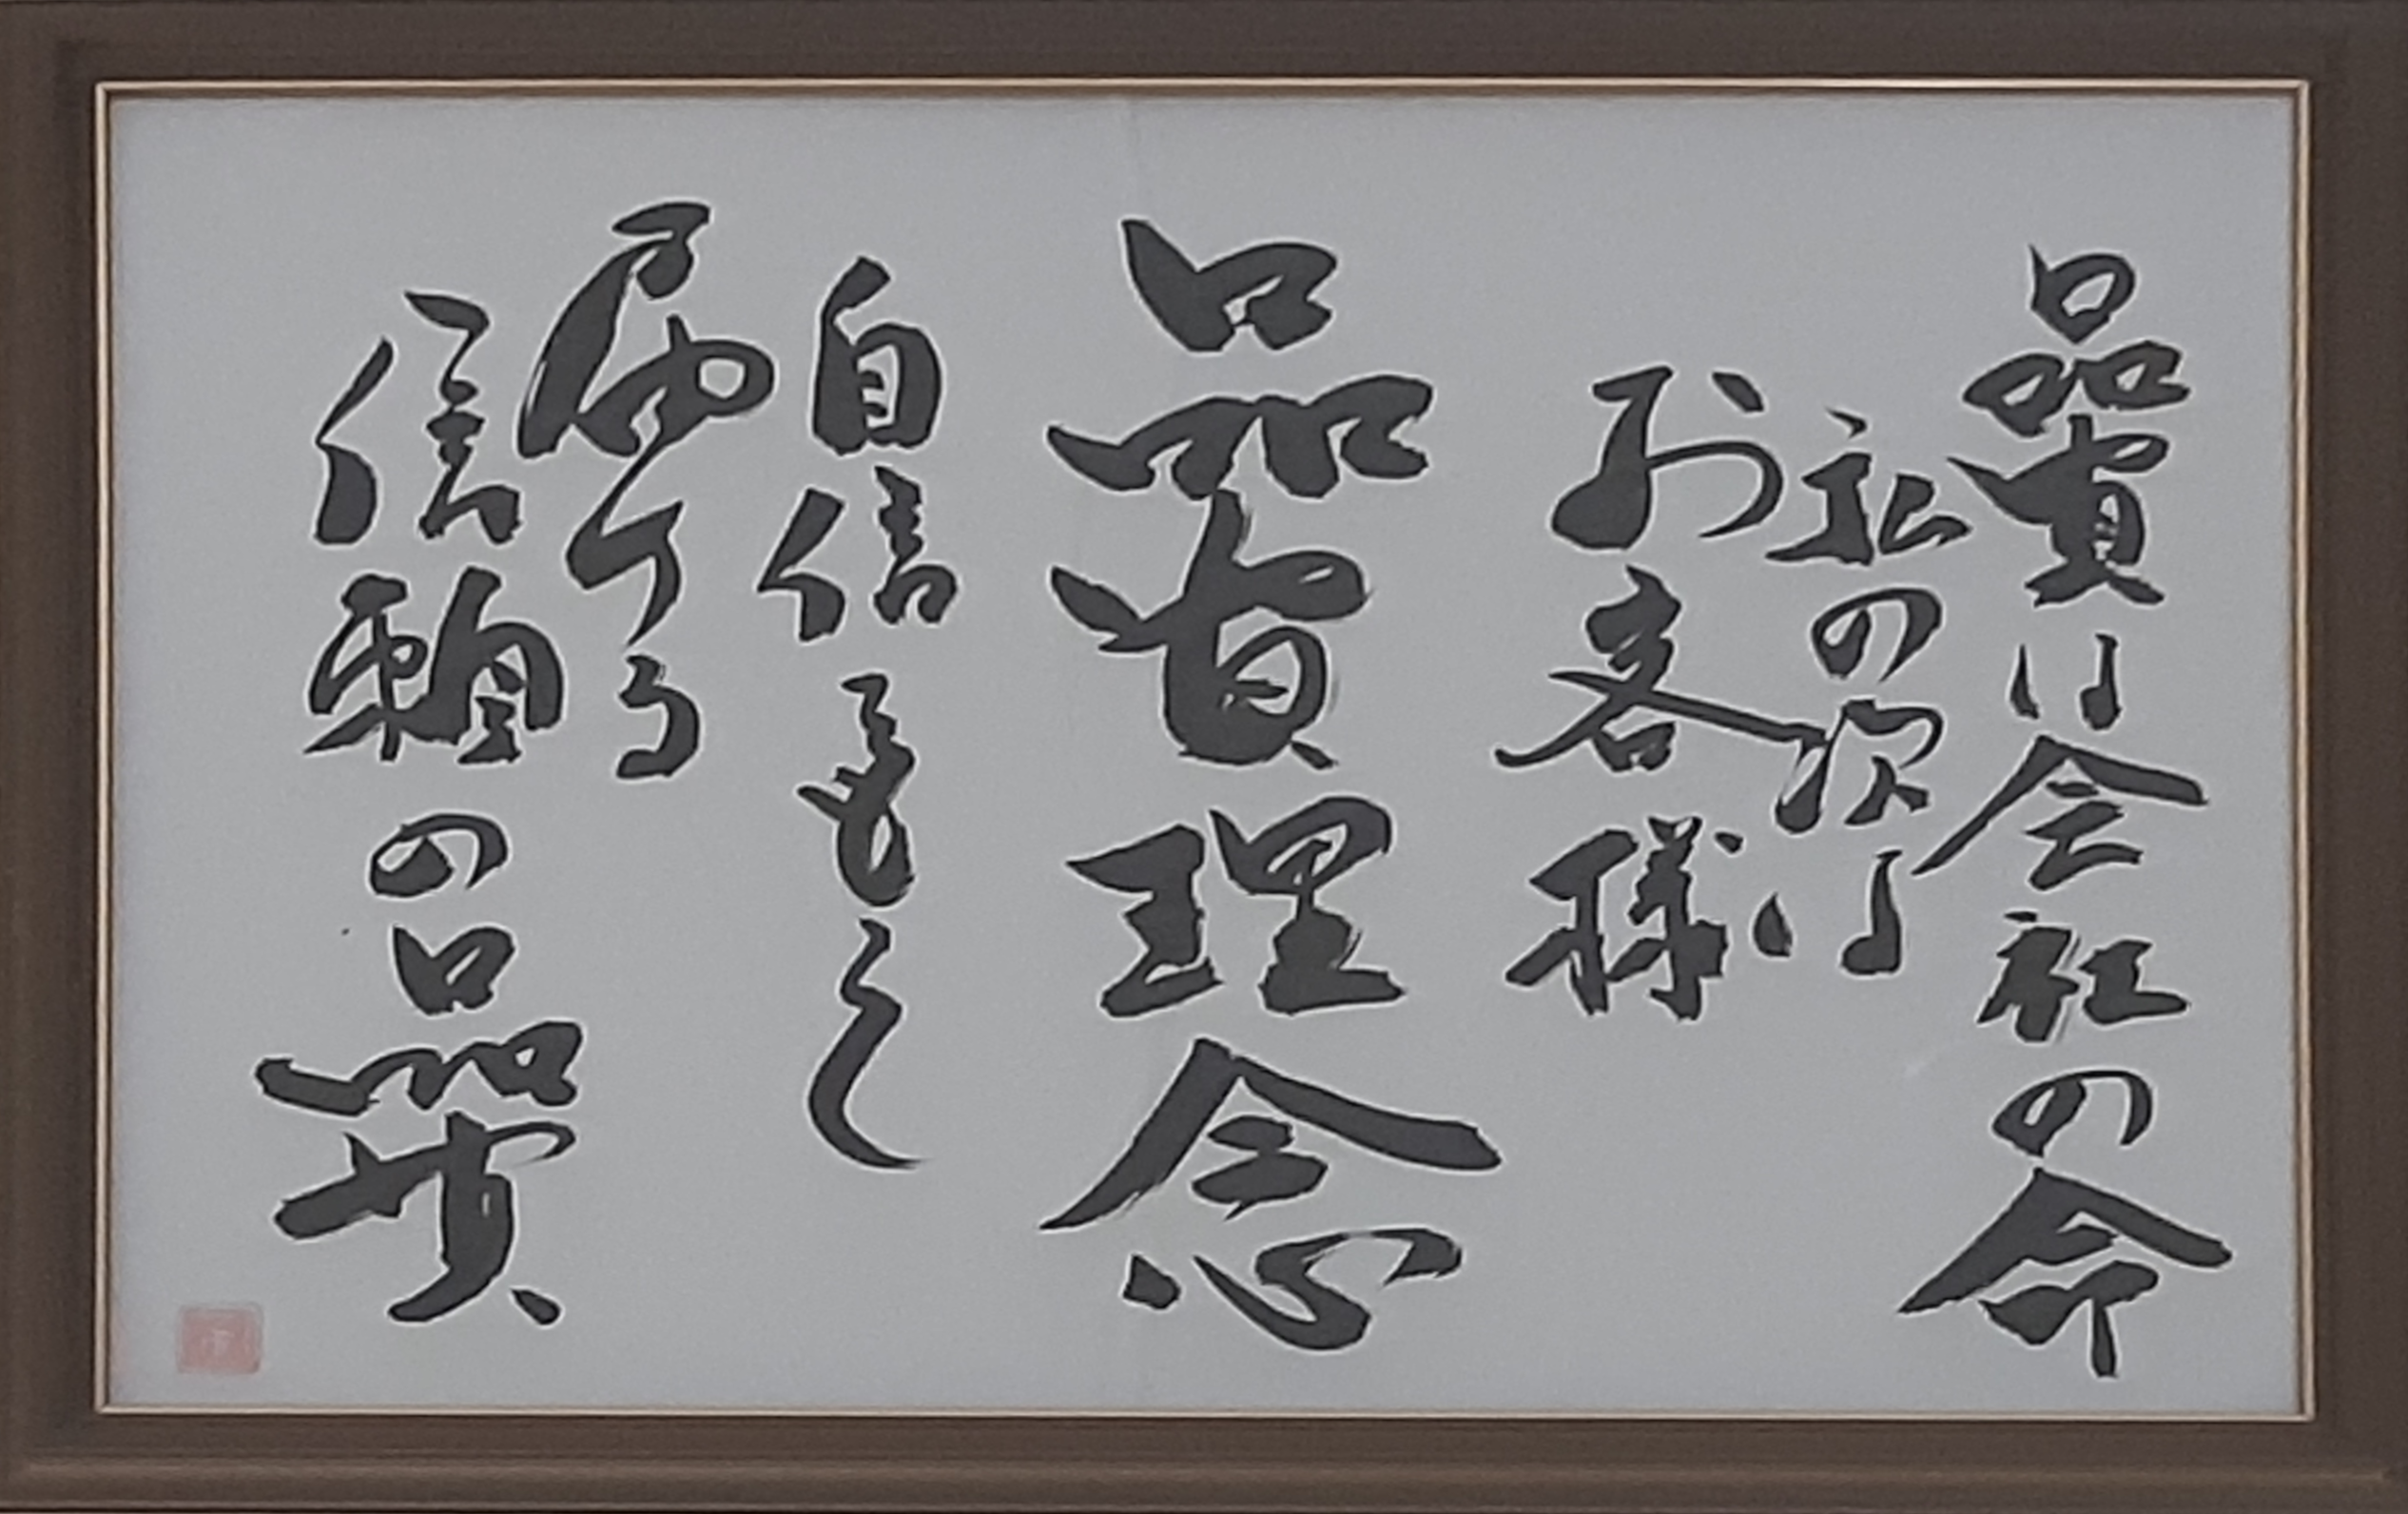 品質は会社の命
私の次は
お客様
品質理念
自信もって
届ける
信頼の品質